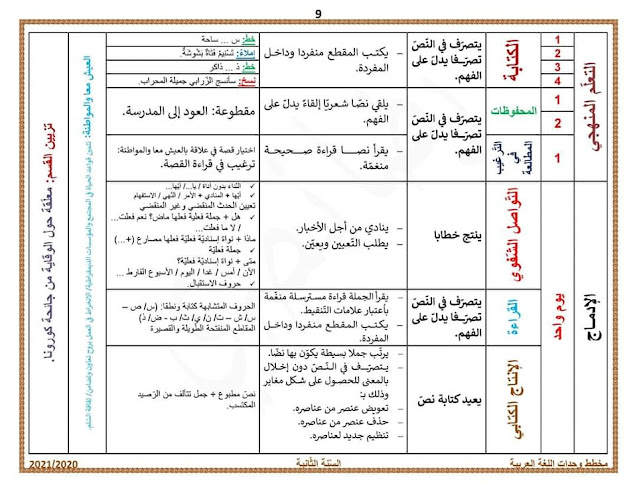 9
التعلّم المنهجي
الكتابة
1
2
3
4
يتصرّف في النّصّ
تصرّفا يدلّ على
الفهم.
– يكتب المقطع منفردا وداخل
المفردة.
خط: س ... ساحة
إملاء: نسنيم فتاة بشوشة.
خط: ذ ... ذاكر
نسخ: سأنسج الزّرابي جميلة المحراب.
المحفوظات
1
2
يتصرّف في النّصّ
تصرّفا يدلّ على
الفهم.
– يلقي نصّا شعريّا إلقاءً يدلّ على
الفهم.
مقطوعة: العود إلى المدرسة.
التّرغيب
في
المطالعة
1
– يقرأ نصّا قراءة صحيحة
منغّمة.
اختيار قصة في علاقة بالعيش معا والمواطنة:
ترغيب في قراءة القصة.
الإدماج
يوم واحد
التّواصل الشّفوي
ينتج خطابا
– ينادي من أجل الأخبار.
– يطلب التّعيين ويعيّن.
✓ النداء بدون أداة / يا... / أيّها...
✓ أيّها + المنادى + الأمر / النّهي / الاستفهام
تعيين الحدث المنقضي وغير المنقضي
✓ هل + جملة فعلية فعلها ماض؟ نعم فعلت...
/ لا ما فعلت...
✓ ماذا + نواة إسناديّة فعليّة فعلها مضارع (+...)
✓ جملة فعليّة
✓ متى + نواة إسناديّة فعليّة؟
✓ الآن / أمس / غدا / اليوم / الأسبوع الفارط ...
✓ حروف الاستقبال.
القراءة
يتصرّف في النّصّ
تصرّفا يدلّ على
الفهم.
– يقرأ الجملة قراءة مسترسلة منغّمة
بأعتبار علامات التّنقيط.
– يكتب المقطع منفردا وداخل
المفردة.
الحروف المتشابهة كتابة ونطقا: (س/ ص –
س/ ش – ت/ ن/ ي/ ث/ ب - ض/ ذ)
المقاطع المنفتحة الطّويلة والقصيرة
الإنتاج الكتابي
يعيد كتابة نصّ
– يرتّب جملا بسيطة يكوّن بها نصّا.
– يتصرّف في النّصّ دون إخلال
بالمعنى للحصول على شكل مغاير
وذلك بـ:
– تعويض عنصر من عناصره.
– حذف عنصر من عناصره.
– تنظيم جديد لعناصره.
نصّ مطبوع + جمل تتألف من الرّصيد
المكتسب.
العيش معا والمواطنة:
تزيين القسم: معلّقة حول الوقاية من جائحة كورونا.
مخطط وحدات اللغة العربية
السنة الثّانية
2021/2020